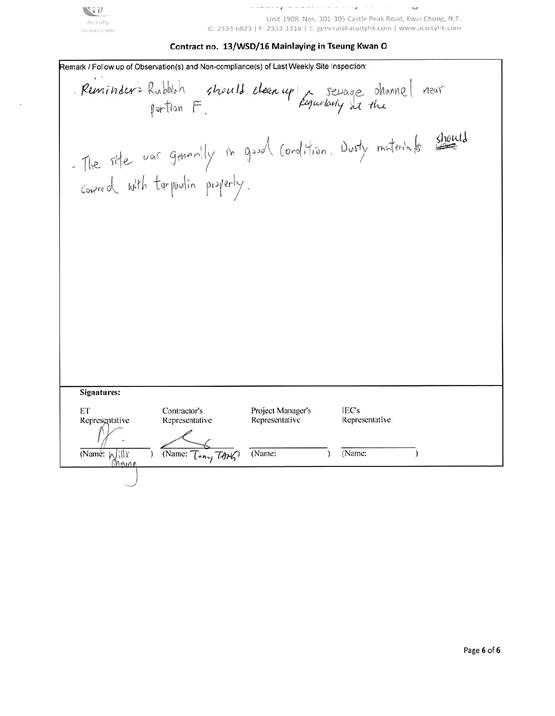 Acuity
Unit 1908, Nos. 301-305 Castle Peak Road, Kwai Chung, N.T.
O: 2333 6823 | F: 2333-1316 | E: general@acuityhk.com | www.acuityhk.com
Contract no. 13/WSD/16 Mainlaying in Tseung Kwan O
Remark / Follow up of Observation(s) and Non-compliance(s) of Last Weekly Site Inspection:
- Reminder: Rubbish should clean up ^ sewage channel near
Regularly at the
portion F.
- The site was generally in good condition. Dusty materials should
covered with tarpaulin properly.
Signatures:
ET Representative
Contractor's Representative
Project Manager's Representative
IEC's Representative
(Name: Willy ) (Name: Tony TANG) (Name: ) (Name: )
Page 6 of 6